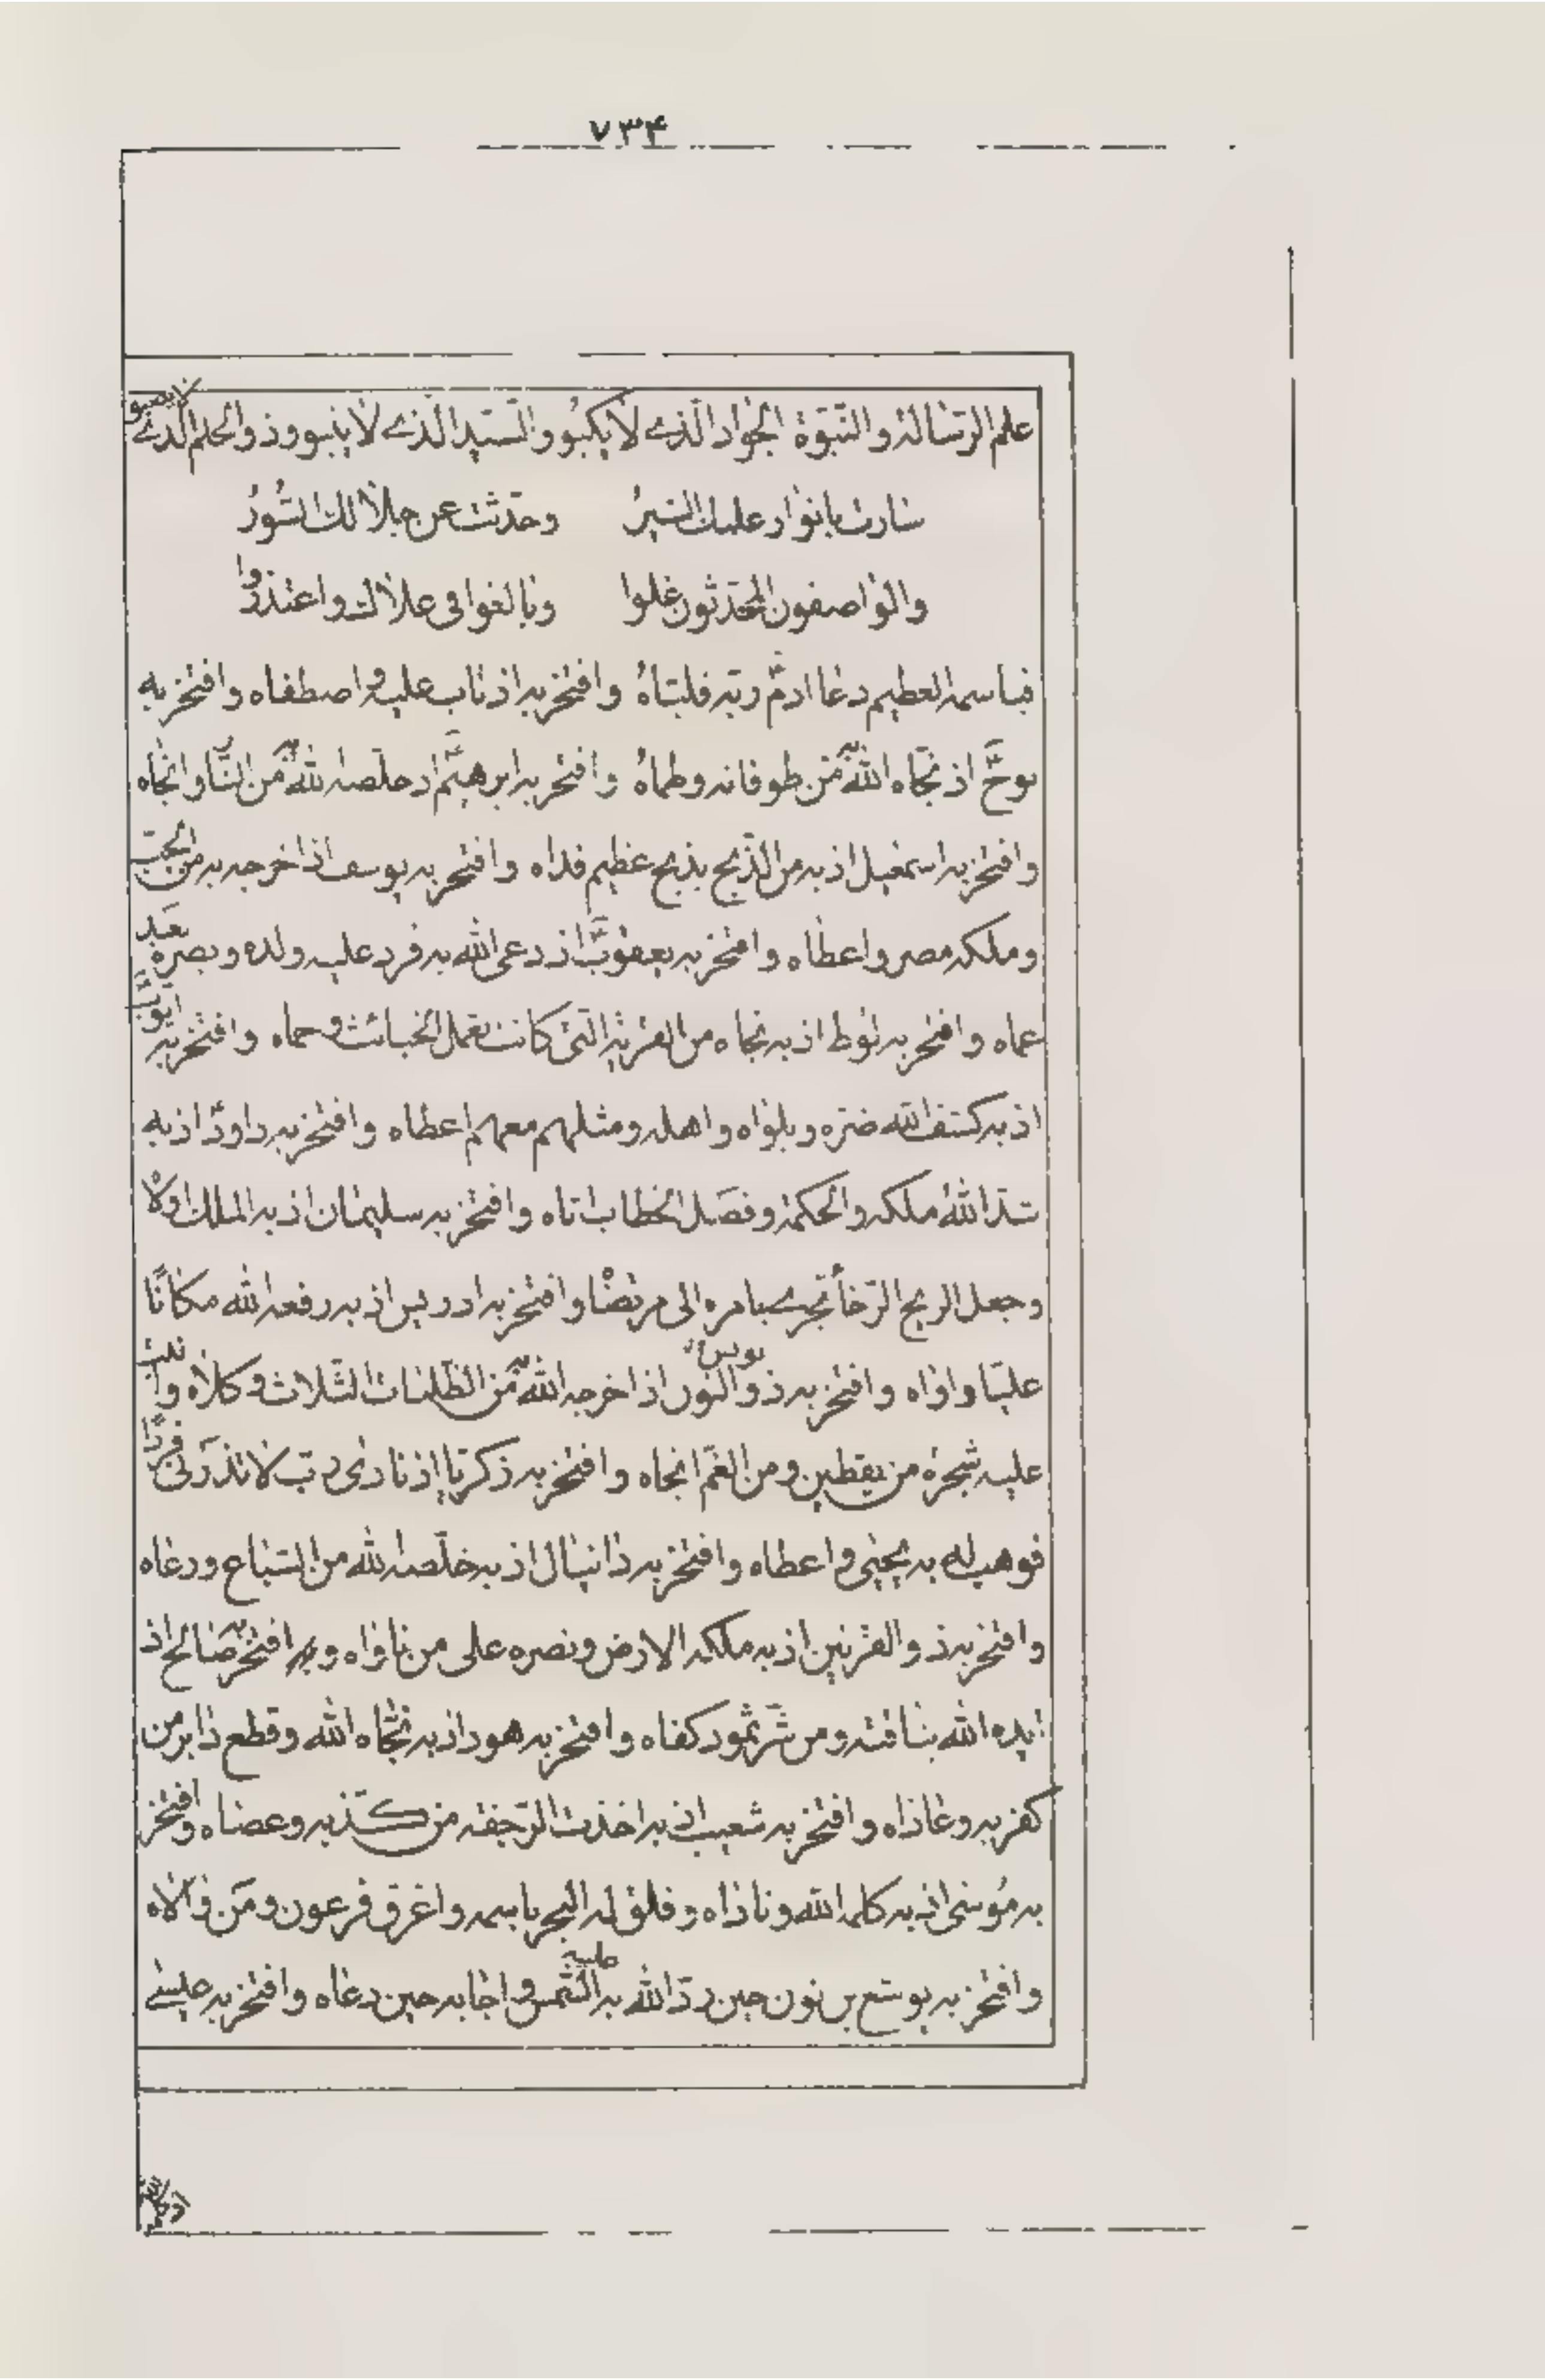 ٧٣۴
علم الرسالة والنبوة الجواد الذي لا يكبو والسيد الذي لا ينبو وذو الحلم الذي لا يصبو
سارت بانوار علمك السير وحدثت عن جلالك السور
والواصفون المحدثون غلوا وبالغوا في علاك واعتذروا
فباسمه العظيم دعا ادم ربه فلباه وافتخر به اذ تاب عليه واصطفاه وافتخر به
نوح اذ نجاه الله به من طوفانه وطماه وافتخر به ابرهيم اذ خلصه الله به من النار وانجاه
وافتخر به اسمعيل اذ به من الذبح بذبح عظيم فداه وافتخر به يوسف اذ اخرجه به من الجب
وملكه مصر واعطاه وافتخر به يعقوب اذ دعى الله به فرد عليه ولده وبصره بعد
عماه وافتخر به لوط اذ به نجاه من القرية التي كانت تعمل الخبائث وحماه وافتخر به ايوب
اذ به كشف الله ضره وبلواه واهله ومثلهم معهم اعطاه وافتخر به داود اذ به
شد الله ملكه والحكمة وفصل الخطاب اتاه وافتخر به سليمان اذ به الملك اولاه
وجعل الريح الرخاء تجري بامره الى مرتضاه وافتخر به ادريس اذ به رفعه الله مكانا
عليا واواه وافتخر به ذو النون يونس اذ اخرجه الله به من الظلمات الثلاث وكلاه وانبت
عليه شجرة من يقطين ومن الغم انجاه وافتخر به زكريا اذ نادى رب لا تذرني فردا
فوهب له به يحيى واعطاه وافتخر به دانيال اذ به خلصه الله من السباع ورعاه
وافتخر به ذو القرنين اذ به ملكه الارض ونصره على من ناواه وافتخر به صالح اذ
ايده الله بناقته ومن شر ثمود كفاه وافتخر به هود اذ به نجاه الله وقطع دابر من
كفر به وعاداه وافتخر به شعيب اذ به اخذت الرجفة من كذبه وعصاه وافتخر
به موسى اذ به كلمه الله وناداه وفلق له البحر باسمه واغرق فرعون ومن والاه
وافتخر به يوشع بن نون حين رد الله به عليه الشمس واجابه حين دعاه وافتخر به عيسى